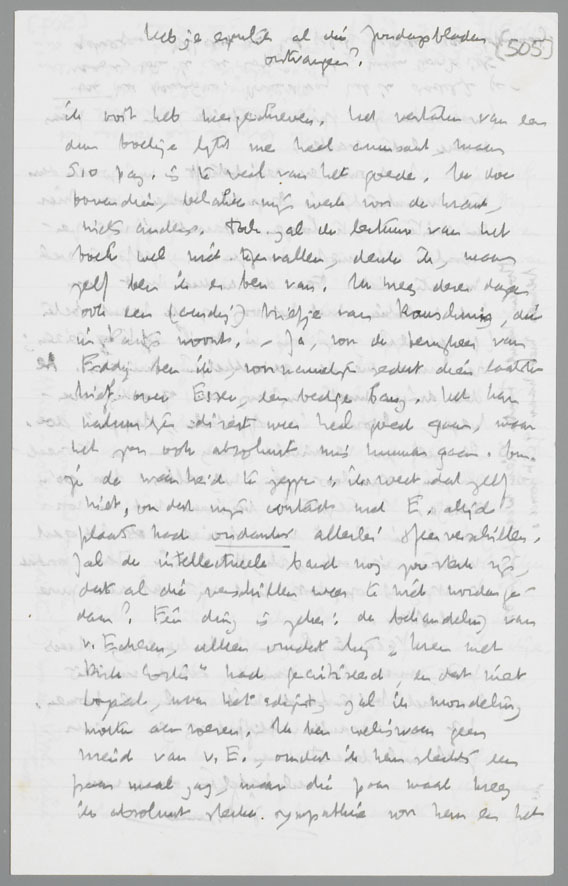 Heb je eigenlijk al die Zondagsbladen (505)
ontvangen?
ik ooit heb meegeschreven. Het vertalen van een
dun boekje lijkt me heel amusant, maar
510 pag. is te veel van het goede. Ik doe
bovendien, behalve mijn werk voor de krant,
niets anders. Toch zal de lectuur van het
boek wel niet tegenvallen, denk ik, maar
zelf ben ik er ben van. Ik kreeg dezer dagen
ook een (aardig) briefje van Rauschning, die
in Parijs woont. – Ja, voor de terugkeer van
Eddy ben ik, voornamelijk sedert dien laatsten
brief over Essen, een beetje bang. Het kan
natuurlijk direct weer heel goed gaan, maar
het zou ook absoluut mis kunnen gaan. Om
je de waarheid te zeggen: ik weet dat zelf
niet, omdat mijn contact met E. altijd
plaats had ondanks allerlei sfeerverschillen.
Zal de intellectueele band nog zoo sterk zijn,
dat al die verschillen weer te niet worden ge-
daan? Eén ding is zeker: de behandeling van
v. Eckeren, alleen omdat hij hem met
"Dirk Coster" had gecritiseerd, en dat niet
loyaal, maar het schijnt, zal ik mondeling
moeten aanroeren. Ik ben weliswaar geen
vriend van v. E., omdat ik hem slechts een
paar maal zag, maar die paar maal kreeg
ik absoluut sterke sympathie voor hem en het